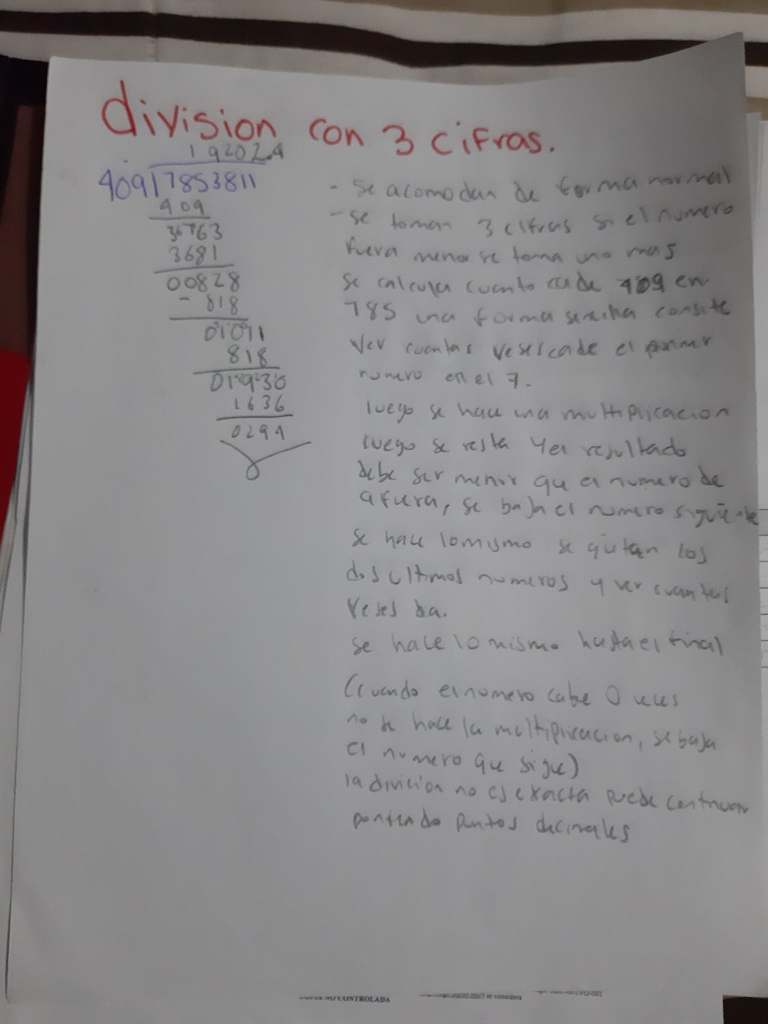 division con 3 cifras.
19202.4
409 7853811
409
3763
3681
00828
- 818
01011
818
01930
1636
0294
- se acomodan de forma normal
- se toman 3 cifras si el numero
fuera menor se toma uno mas
se calcula cuanto cade 409 en
785 una forma consite
ver cuentas veses cade el primer
numero en el 7.
luego se hace una multiplicacion
luego se resta y el resultado
debe ser menor que el numero de
afuera, se baja el numero siguiente
se hace lo mismo se quitan los
dos ultimos numeros y ver cuantas
veses da.
se hace lo mismo hasta el final
(cuando el numero cabe 0 veces
no se hace la multiplicacion, se baja
el numero que sigue)
la division no es exacta puede continuar
poniendo puntos decimales
CONTROLADA